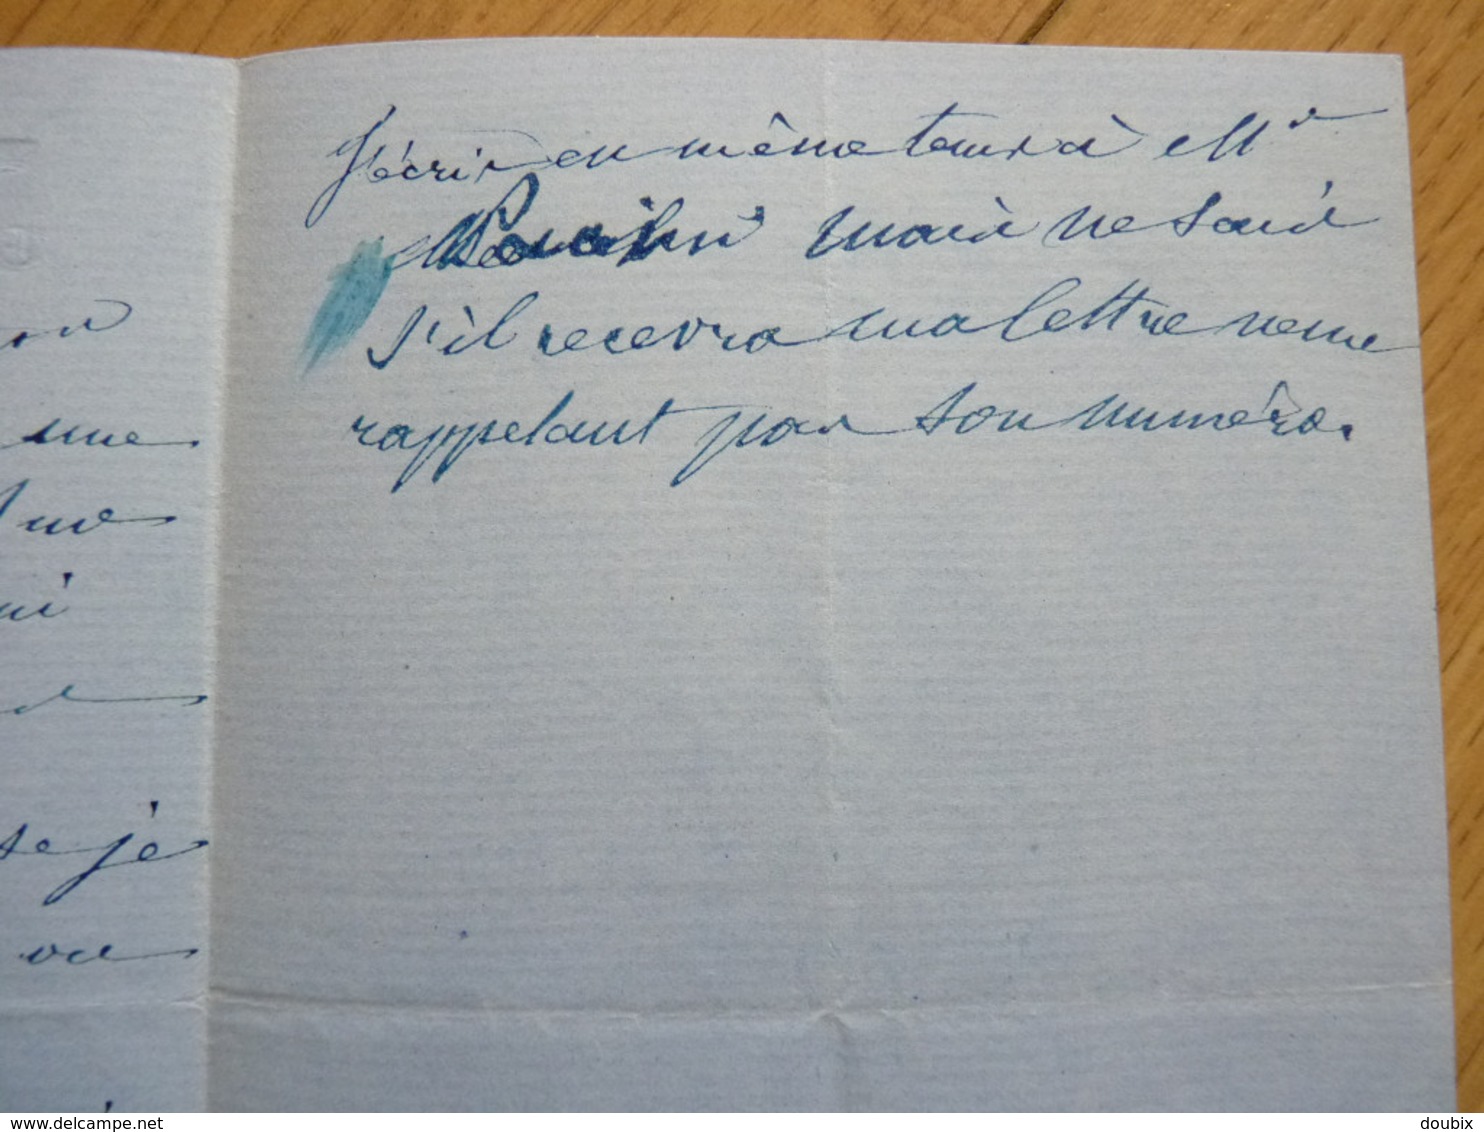 J'écris en même temps à Mr
mais ne sais
s'il recevra ma lettre ne me
rappelant pas son numéro.
une
me
se je
delcampe.net
doubix